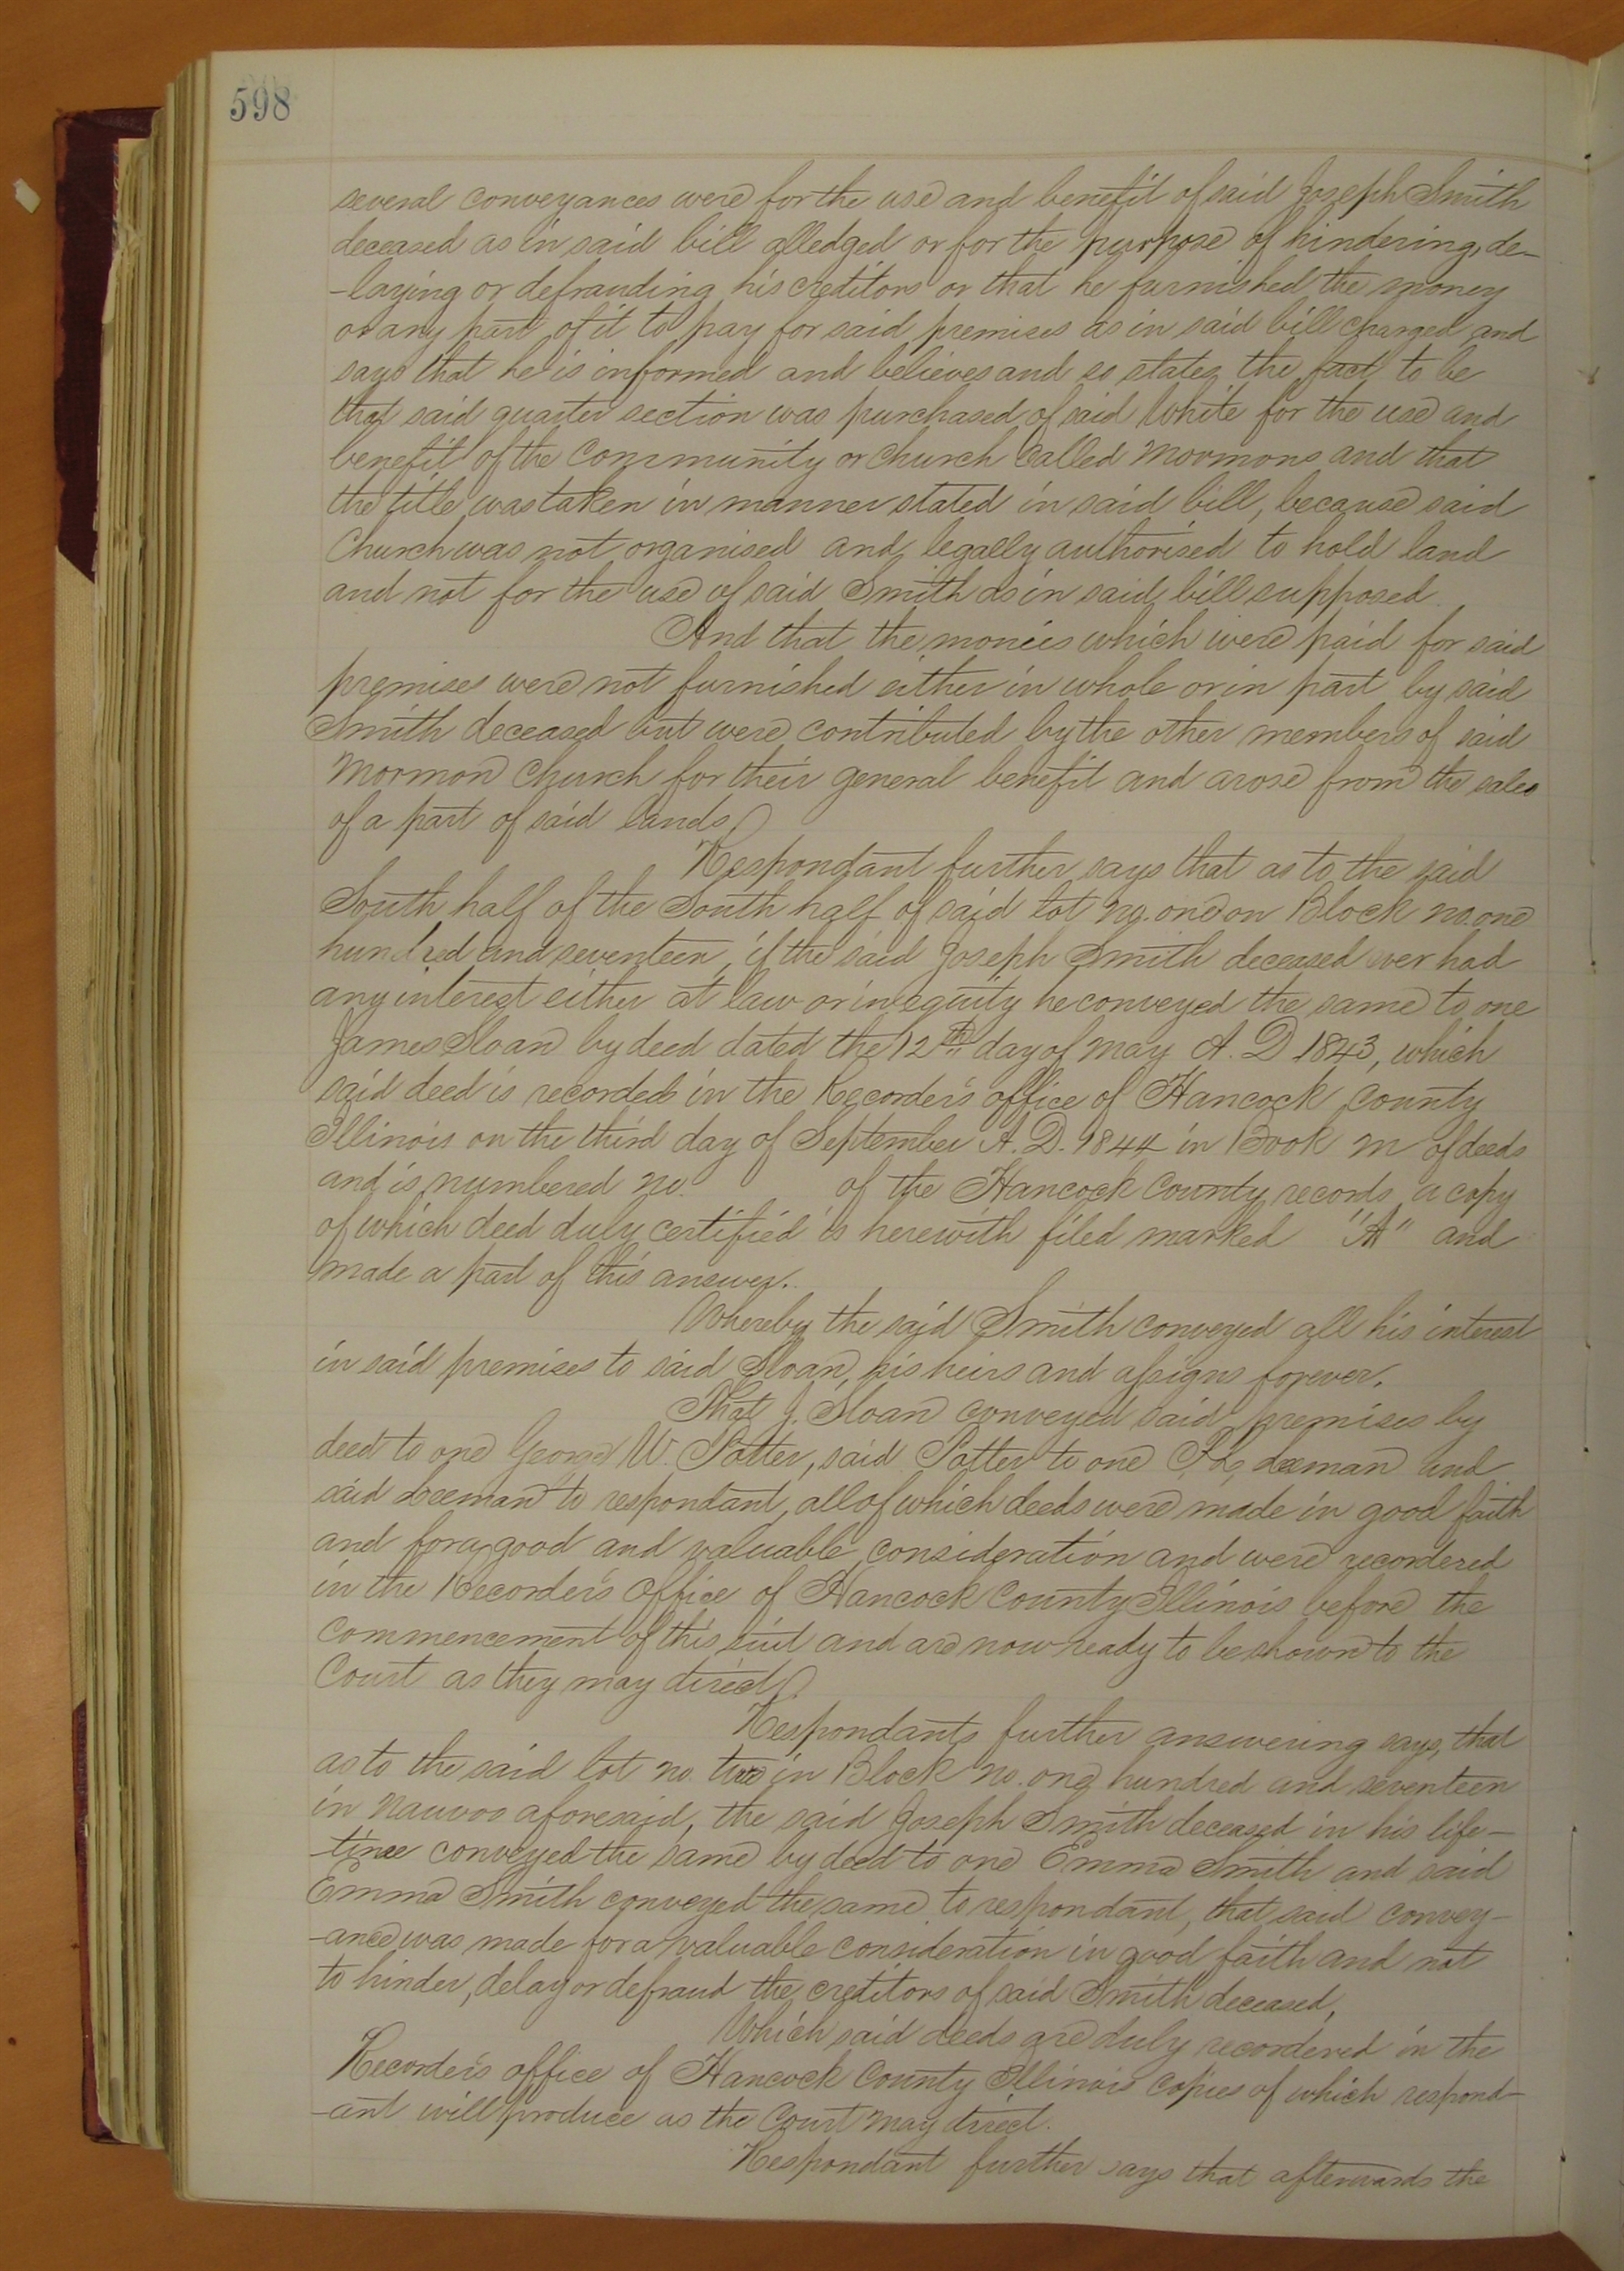 598
several conveyances were for the use and benefit of said Joseph Smith
deceased as in said bill alledged or for the purpose of hindering, de-
-laying or defrauding his creditors or that he furnished the money
or any part of it to pay for said premises as in said bill charged and
says that he is informed and believes and so states the fact to be
that said quarter section was purchased of said White for the use and
benefit of the Community or Church called Mormons and that
the title was taken in manner stated in said bill, because said
Church was not organised and legally authorised to hold land
and not for the use of said Smith as in said bill supposed.
And that the monies which were paid for said
premises were not furnished either in whole or in part by said
Smith deceased but were contributed by the other members of said
Mormon Church for their general benefit and arose from the sales
of a part of said lands.
Respondant further says that as to the said
South half of the South half of said lot No. one on Block no. one
hundred and seventeen, if the said Joseph Smith deceased ever had
any interest either at law or in equity he conveyed the same to one
James Sloan by deed dated the 12th day of May A. D 1843, which
said deed is recorded in the Recorder's office of Hancock County
Illinois on the third day of September A. D. 1844 in Book M of deeds
and is numbered no. of the Hancock County records, a copy
of which deed duly certified is herewith filed marked "A" and
made a part of this answer.
Whereby the said Smith conveyed all his interest
in said premises to said Sloan, his heirs and assigns forever.
That J. Sloan conveyed said premises by
deed to one George W. Potter, said Potter to one Leeman and
said Leeman to respondant, all of which deeds were made in good faith
and for a good and valuable consideration and were recordered
in the Recorder's Office of Hancock County Illinois before the
commencement of this suit and are now ready to be shown to the
Court as they may direct.
Respondants further answering says, that
as to the said lot no. two in Block no. one hundred and seventeen
in Nauvoo aforesaid, the said Joseph Smith deceased in his life-
-time conveyed the same by deed to one Emma Smith and said
Emma Smith conveyed the same to respondant, that said convey-
-ance was made for a valuable consideration in good faith and not
to hinder, delay or defraud the creditors of said Smith deceased,
Which said deeds are duly recordered in the
Recorder's office of Hancock County Illinois copies of which respond-
-ant will produce as the Court may direct.
Respondant further says that afterwards the